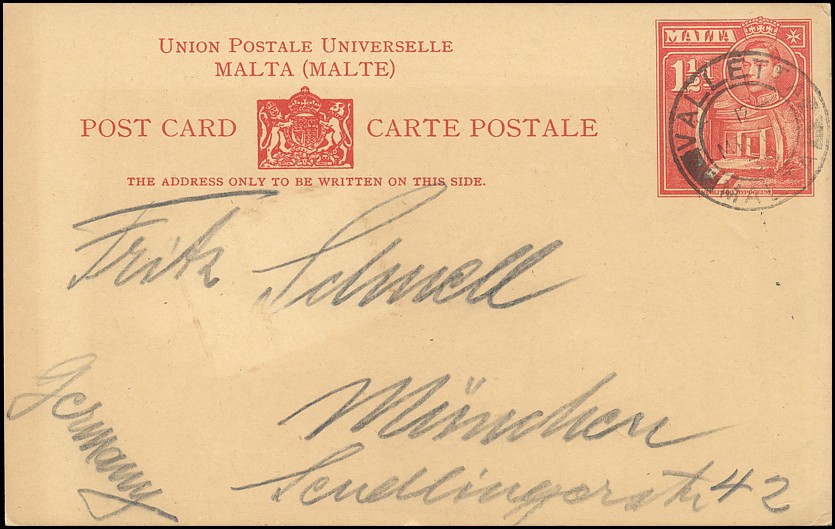 UNION POSTALE UNIVERSELLE
MALTA (MALTE)
POST CARD CARTE POSTALE
THE ADDRESS ONLY TO BE WRITTEN ON THIS SIDE.
MALTA
1½
HYPOGEUM
VALLETTA
MALTA
Fritz Schnell
München
Sendlingerstr 42
Germany